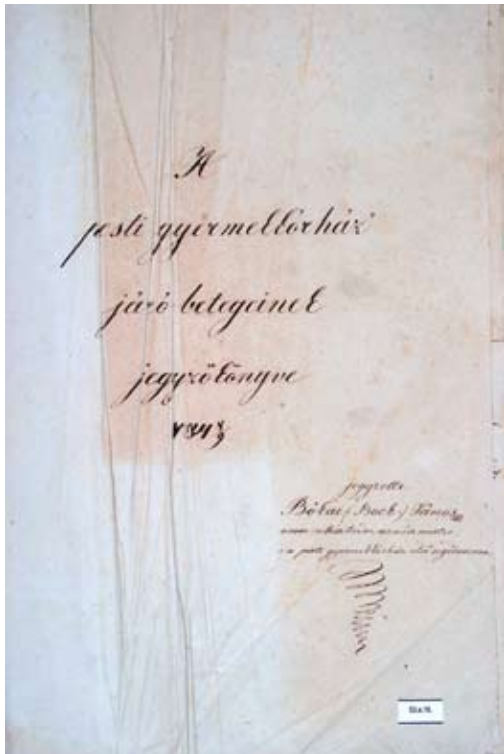 A
pesti gyermekkórház
járó betegeinek
jegyzőkönyve
184 8/9
jegyzette
Bókai (Bock) János
a pesti gyermekkórház első